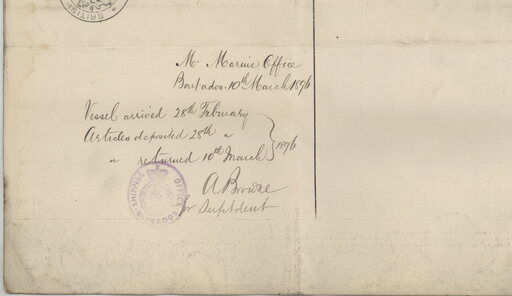 BRITISH
M. Marine Office
Barbados 10th March 1896
Vessel arrived 28th February
Articles deposited 28th "
" returned 10th March } 1896
A Browne
for Suptdent
SHIPPING OFFICE
BARBADOS